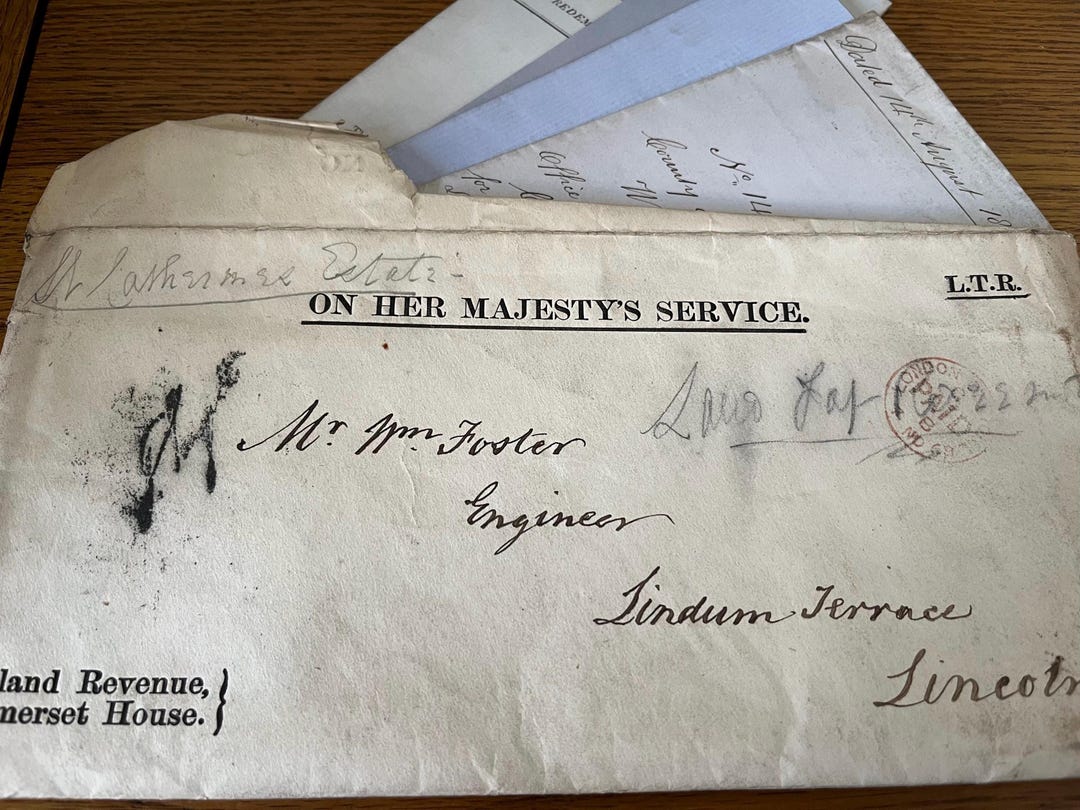 REDEM
Dated 14th August 18
No. 14
County
Office
for
St Catherines Estate
L.T.R.
ON HER MAJESTY'S SERVICE.
Land Tax
LONDON
PAID
Mr Wm Foster
Engineer
Lindum Terrace
Lincoln
land Revenue,
merset House.